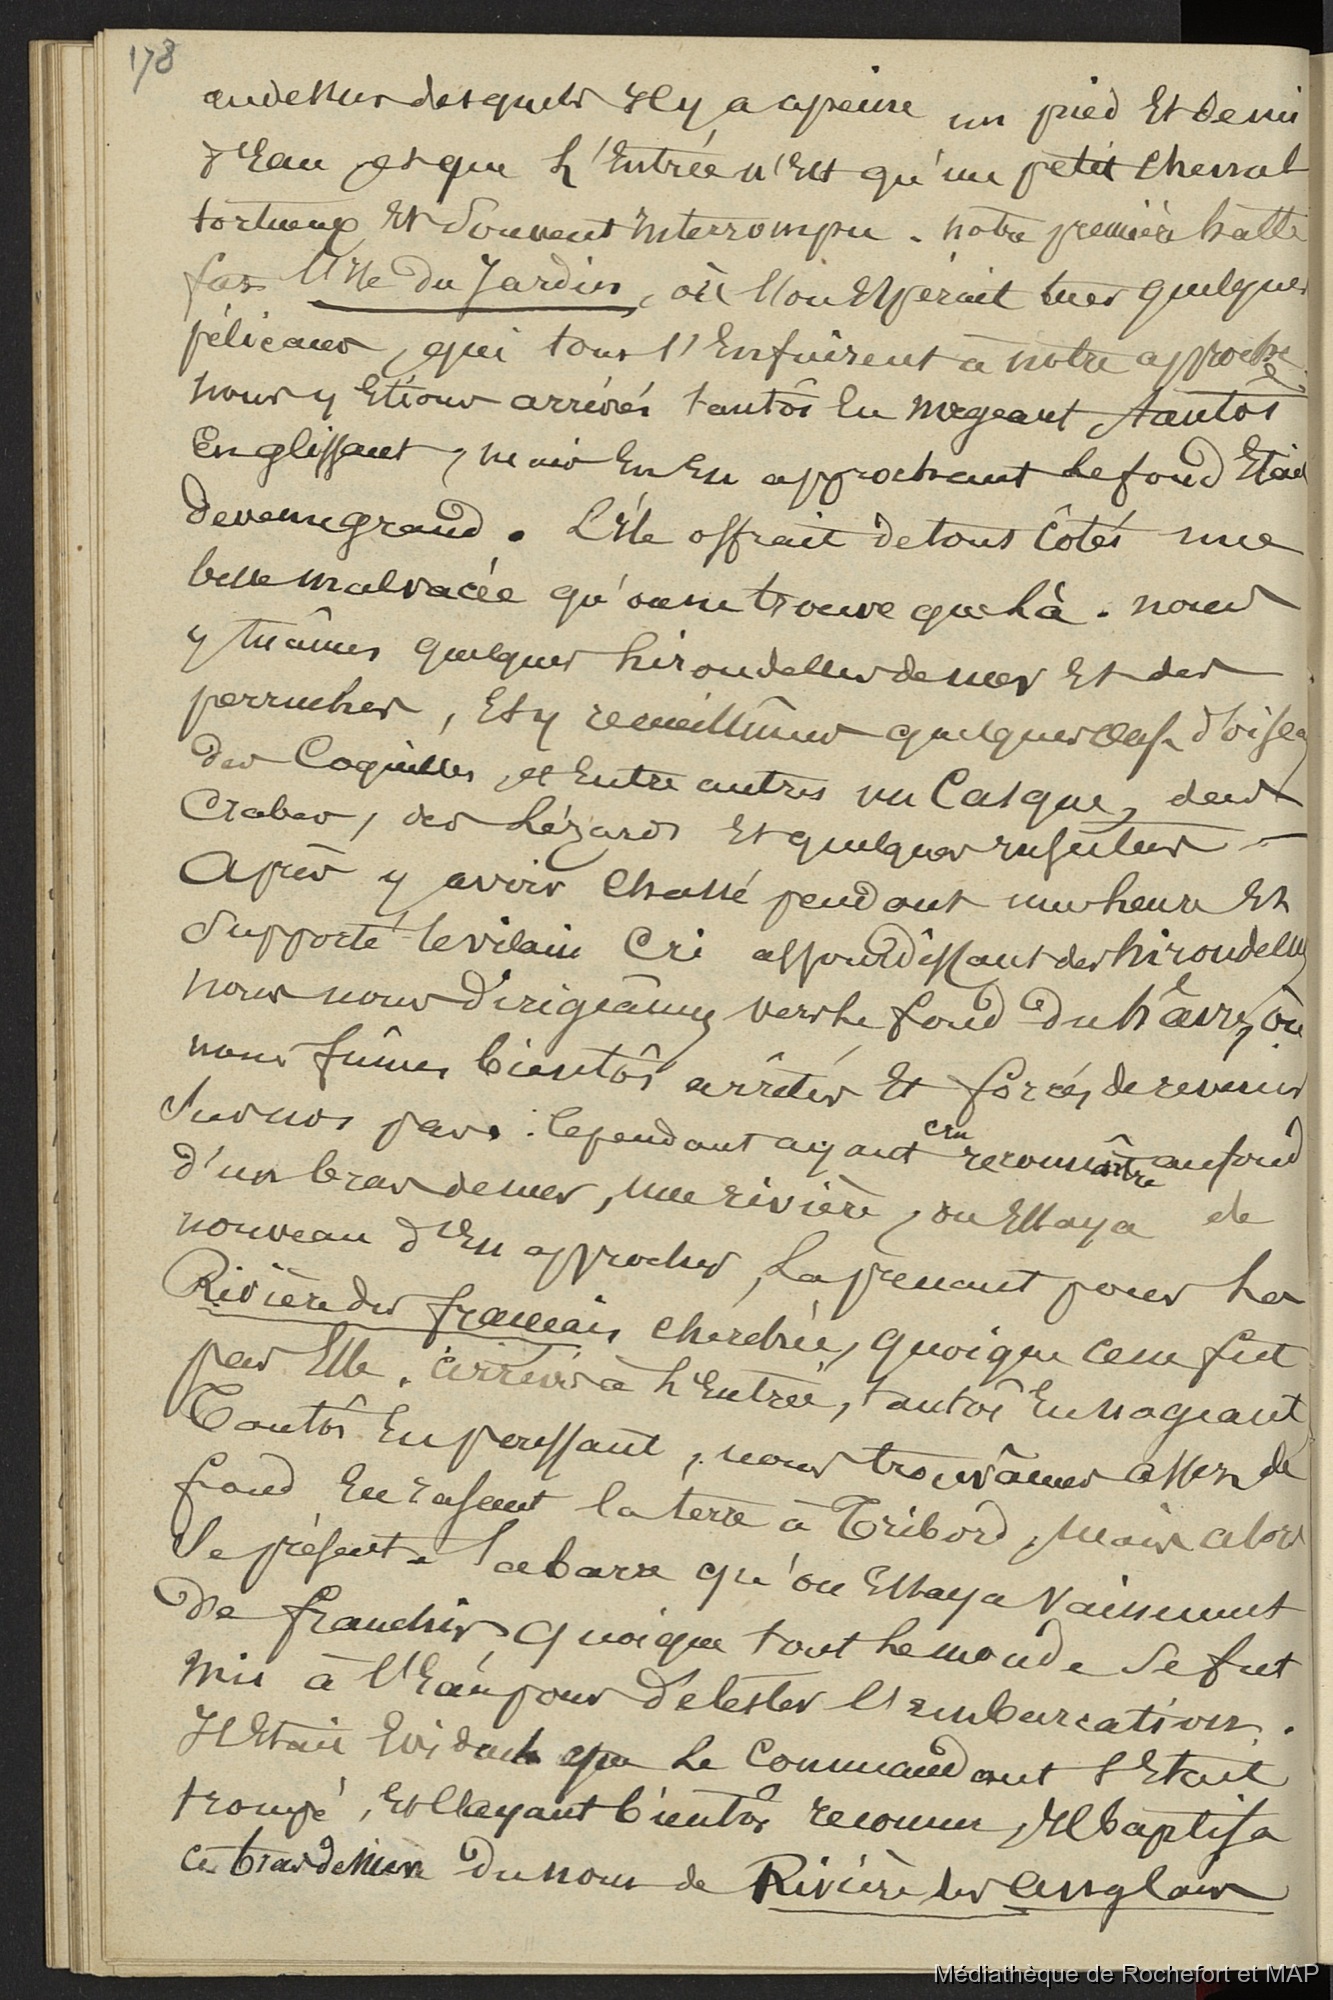 178
audessus desquels Il y a apeine un pied Et Demi
d'Eau, et que L'Entrée n'Est qu'un petit Chenal
tortueux Et Souvent Interrompu. notre première halte
fut l'Ile du Jardin, où l'on Espérait tuer quelques
pélicans, qui tous s'Enfuirent à notre approche.
nous y Etions arrivés tantôt En nageant, tantôt
En glissant, mais En En approchant Le fond Etait
devenu grand. L'île offrait de tous Côtés une
belle malvacée qu'on ne trouve que Là. nous
y tuâmes quelques hirondelles de mer Et des
perruches, Et y recueillîmes quelques Oeufs d'oiseau
des Coquilles, et Entre autres un Casque, des
Crabes, des Lézards Et quelques insectes —
Après y avoir Chassé pendant une heure Et
Supporté le vilain Cri assourdissant des hirondelles
nous nous dirigeâmes vers Le fond Du hâvre, où
nous fûmes bientôt arrêtés Et forcés de revenir
Sur nos pas. Cependant ayant cru reconnaître au fond
d'un bras de mer, une rivière, on Essaya de
nouveau d'En approcher, La prenant pour La
Rivière des français cherchée, quoique ce ne fut
pas Elle. arrivés à L'Entrée, tantôt En nageant
Tantôt En poussant, nous trouvâmes assez de
fond En rasant la terre à Tribord, mais alors
Se présente la barre qu'on Essaya Vainement
De franchir, quoique tout Le monde Se fut
mis à l'Eau pour délester l'embarcation.
Il Etait Evident que Le Commandant S'Etait
trompé, Et l'ayant bientôt reconnu, Il baptisa
ce bras de Mer Du nom de Rivière des Anglais
Médiathèque de Rochefort et MAP